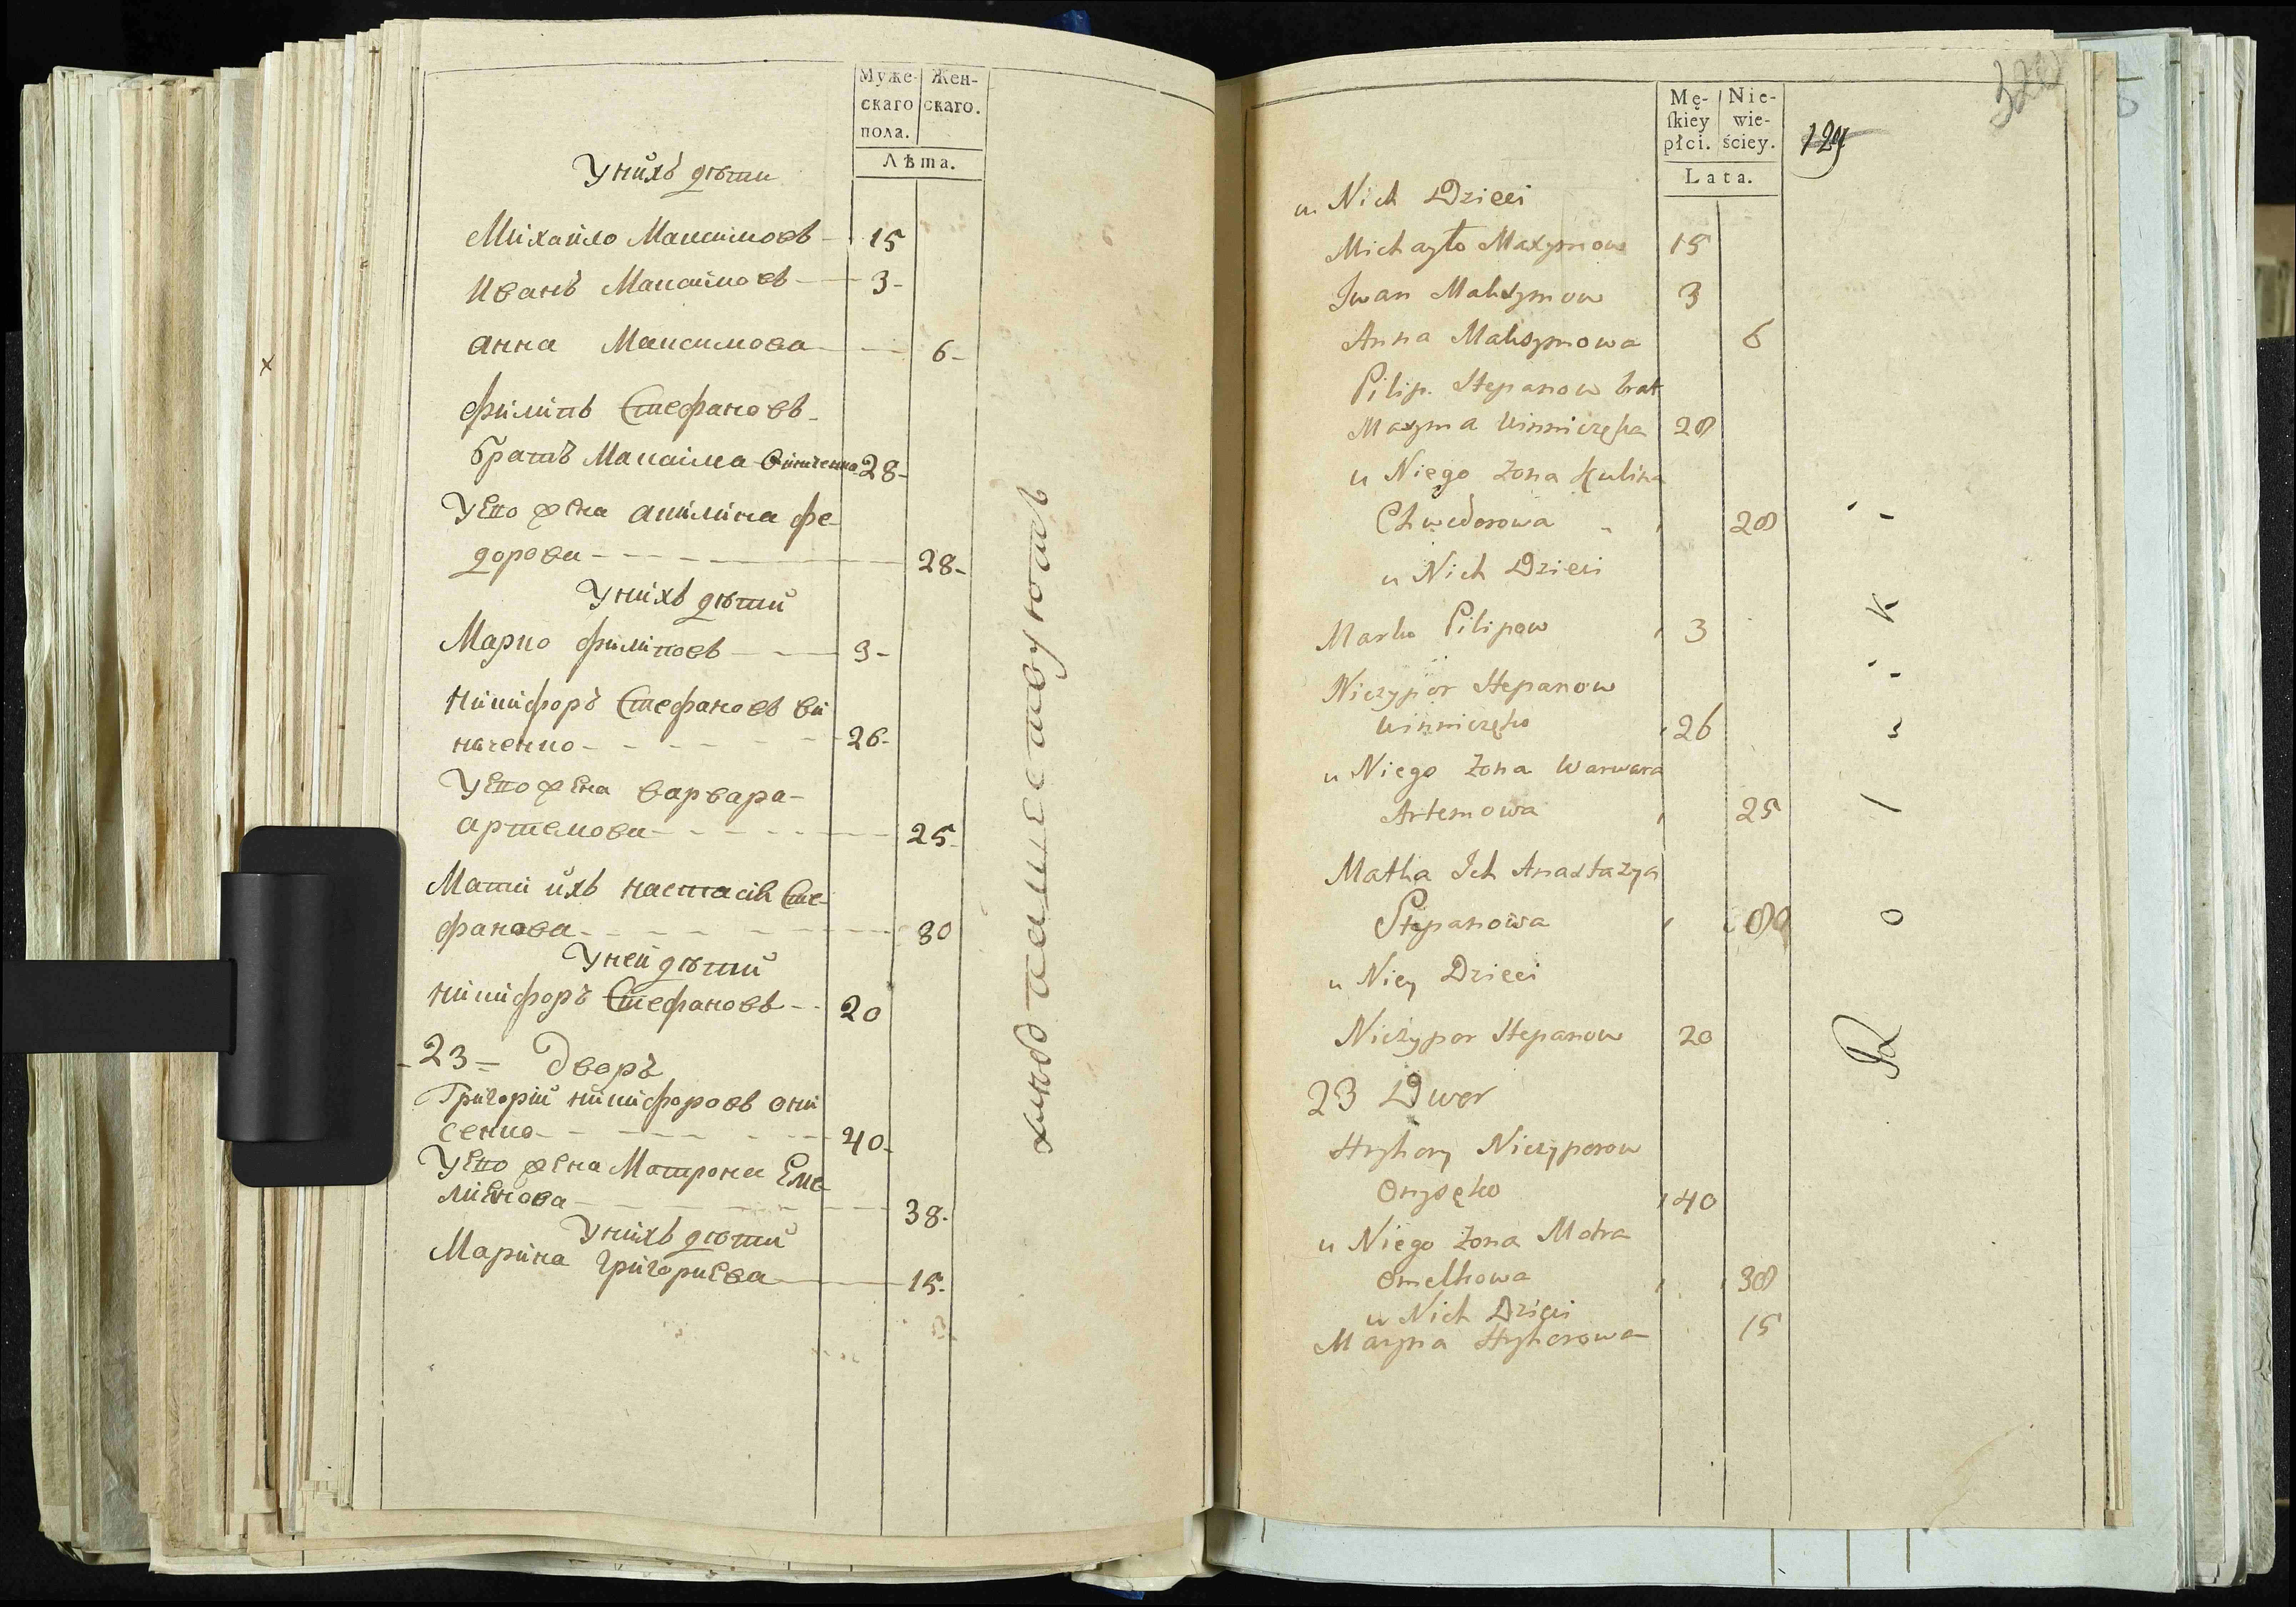 Муже-
скаго
пола.
Жен-
скаго.
Лѣта.
У нихъ дѣти
Михайло Максимовъ 15
Иванъ Максимовъ 3
Анна Максимова 6
Филипъ Стефановъ
братъ Максима Виниченка 28
У его жена Акилина Фе-
дорова 28
У нихъ дѣти
Марко Филиповъ 3
Никифоръ Стефановъ Ви
ниченко 26
У его жена Варвара
Артемова 25
Мати ихъ Настасія Сте-
фанова 80
У ней дѣти
Никифоръ Стефановъ 20
23 Дворъ
Григорій Никифоровъ Они
сенко 40
У его жена Матрона Еме
лиянова 38
У нихъ дѣти
Марина Григориева 15
Mę-
ſkiey
płci.
Nie-
wie-
ściey.
Lata.
129
320
u Nich Dzieci
Michayło Maxymow 15
Iwan Maksymow 3
Anna Maksymowa 6
Pilip Stepanow brat
Maxyma Winniczęka 28
u Niego Zona Kulina
Chwedorowa 28
u Nich Dzieci
Marko Pilipow 3
Niczypor Stepanow
Winniczęko 26
u Niego Zona Warwara
Artemowa 25
Matka Ich Anastazya
Stepanowa 80
u Niey Dzieci
Niczypor Stepanow 20
23 Dwor
Hryhory Niczyporow
Onysęko 40
u Niego Zona Motra
Omelkowa 38
u Nich Dzieci
Maryna Hryhorowa 15